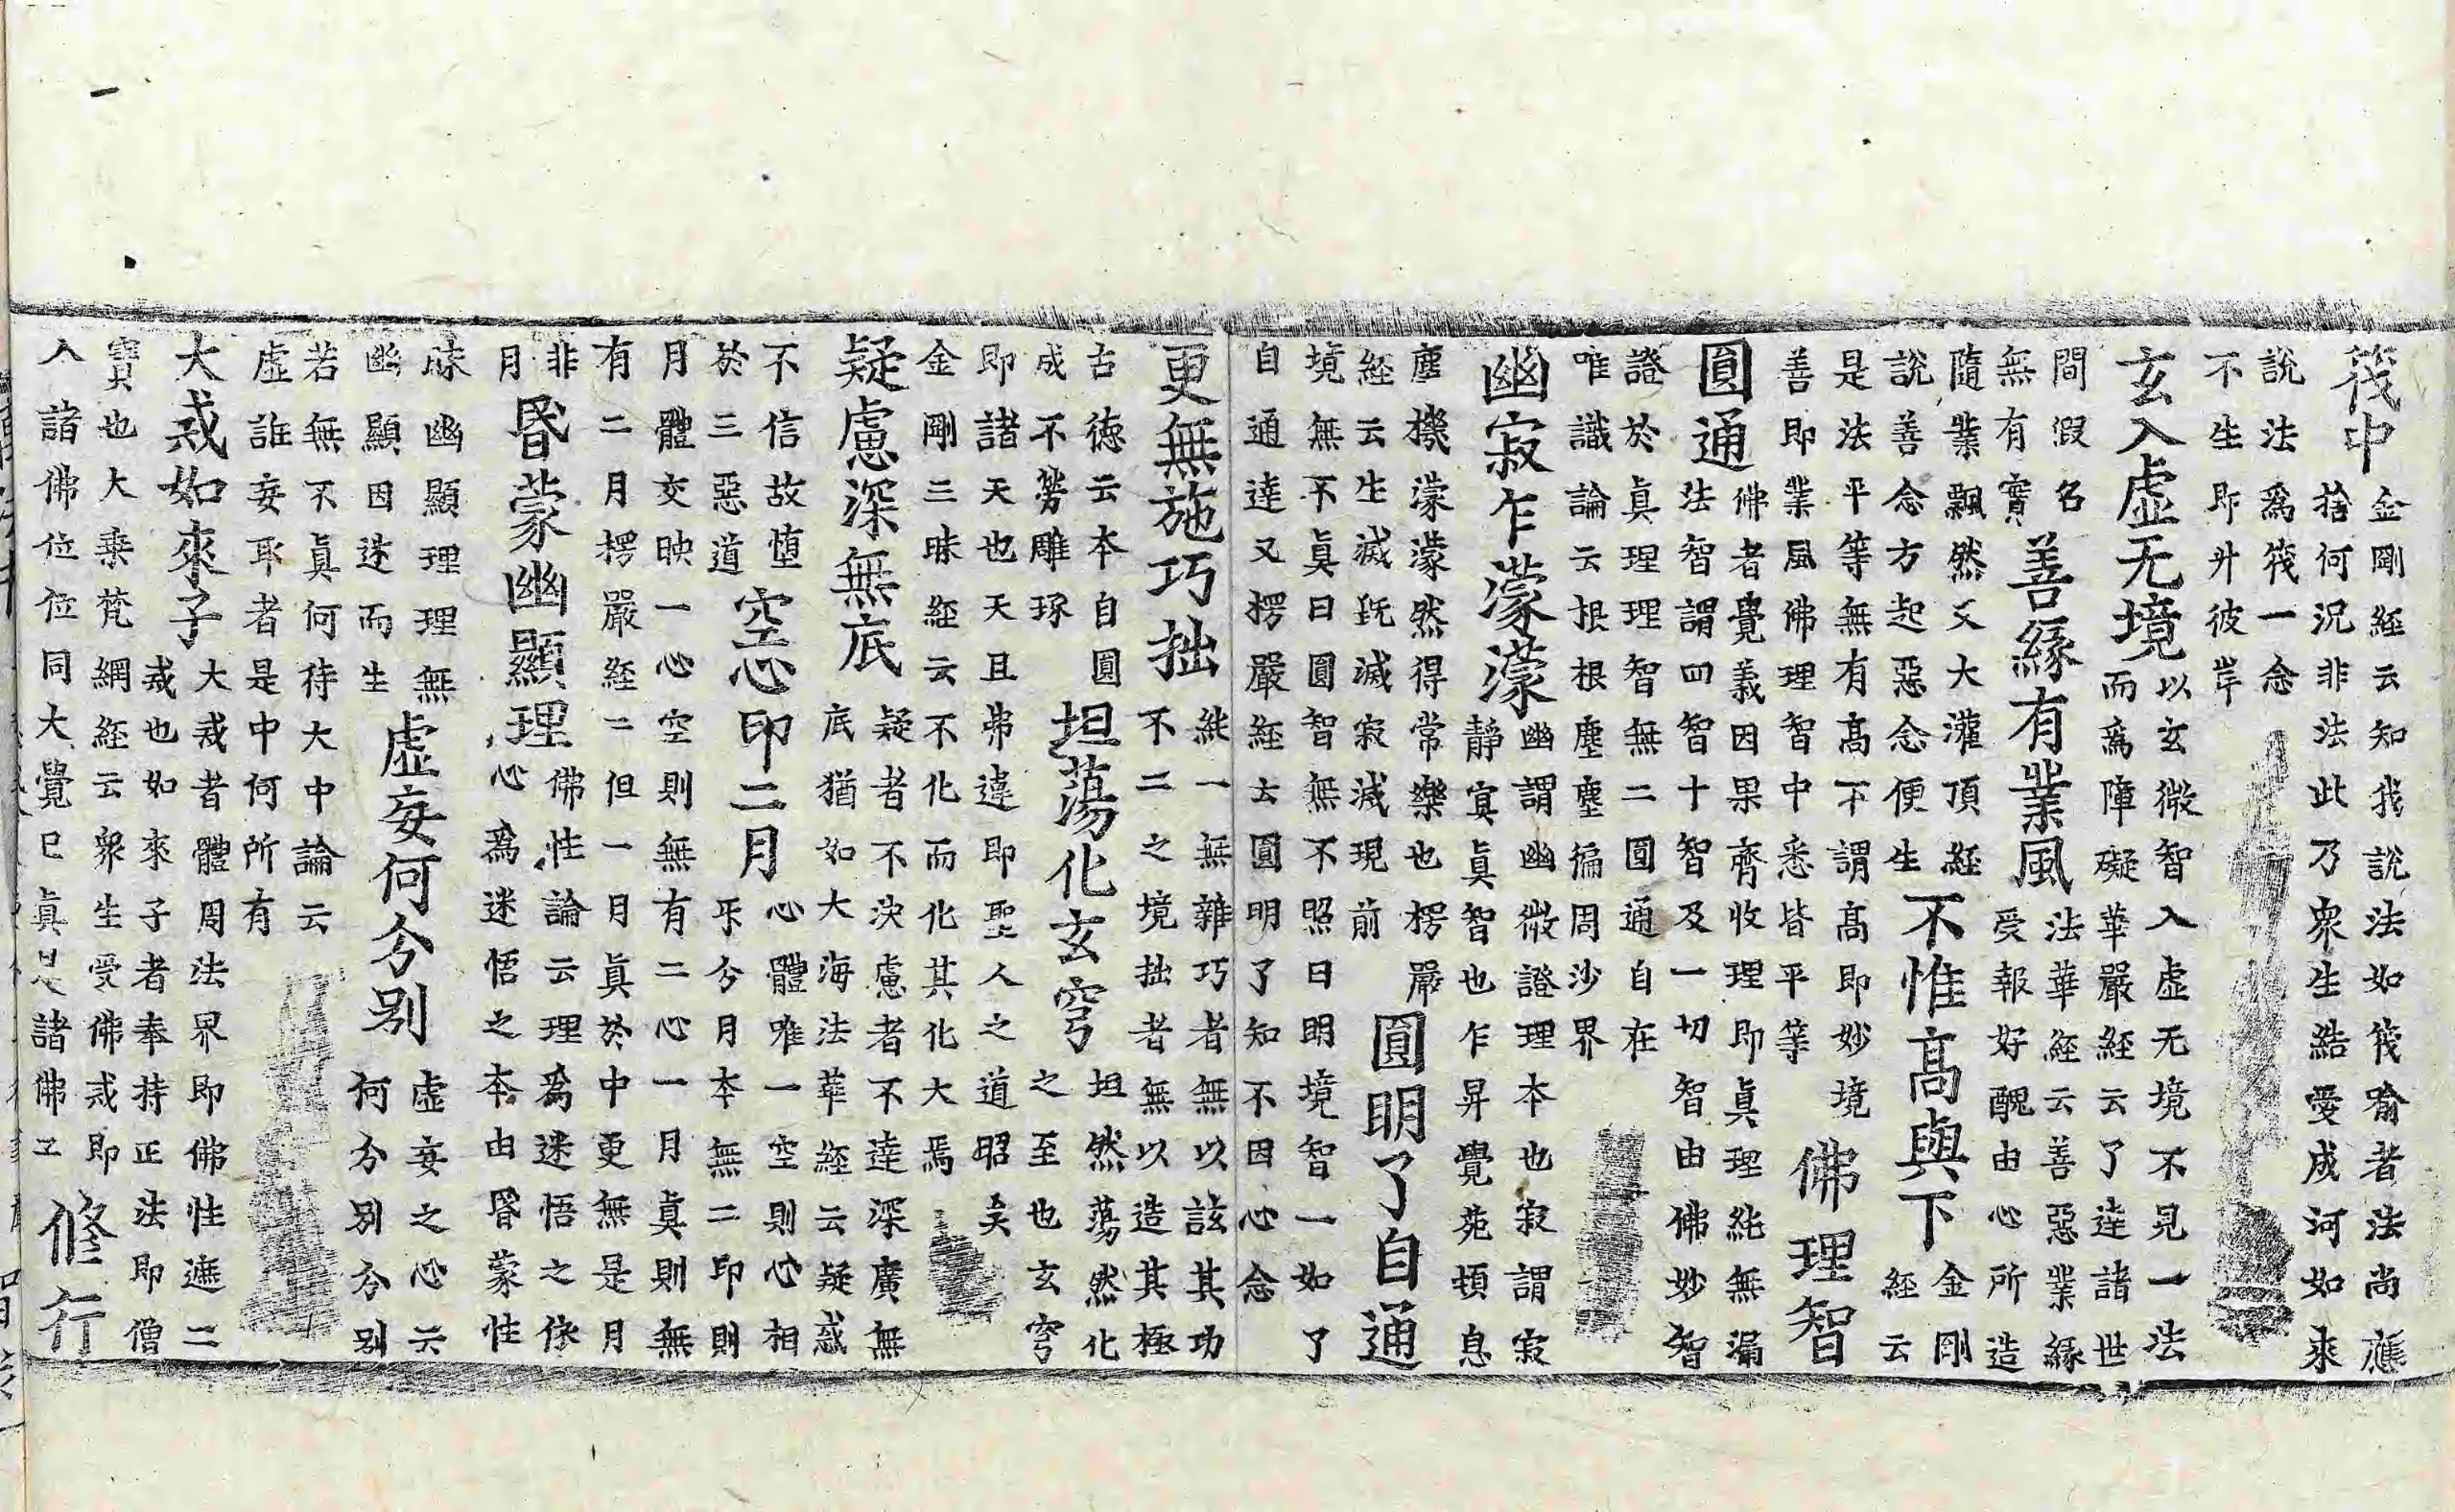 筏中
金剛經云知我說法如筏喻者法尚應
捨何況非法此乃衆生結愛成河如來
說法為筏一念
不生即升彼岸
玄入虛无境
以玄微智入虛无境不見一法
而為障礙華嚴經云了達諸世
間假名
無有實
善緣有業風
法華經云善惡業緣
受報好醜由心所造
隨業飄然又大灌頂經
說善念方起惡念便生
不惟髙與下
金剛
經云
是法平等無有髙下謂髙即妙境
善即業風佛理智中悉皆平等
佛理智
圓通
佛者覺義因果齊收理即真理純無漏
法智謂四智十智及一切智智由佛妙智
證於真理理智無二圓通自在
唯識論云根根塵塵徧周沙界
幽寂乍濛濛
幽謂幽微證理本也寂謂寂
靜真智也乍昇覺苑頓息
塵機濛濛然得常樂也楞嚴
經云生滅既滅寂滅現前
圓明了自通
境無不真曰圓智無不照曰明境智一如了
自通達又楞嚴經云圓明了知不因心念
更無施巧拙
純一無雜巧者無以該其功
不二之境拙者無以造其極
古德云本自圓
成不勞雕琢
坦蕩化玄穹
坦然蕩然化
之至也玄穹
即諸天也天且弗違即聖人之道昭矣
金剛三昧經云不化而化其化大焉
疑慮深無底
疑者不決慮者不達深廣無
底猶如大海法華經云疑惑
不信故墮
於三惡道
空心印二月
心體唯一空則心相
分月本無二印則
月體交映一心空則無有二心一月真則無
有二月楞嚴經云但一月真於中更無是月
非
月
昏蒙幽顯理
佛性論云理為迷悟之依
心為迷悟之本由昏蒙性
昧幽顯理理無
幽顯因迷而生
虛妄何分别
虛妄之心云
何分别分别
若無不真何待大中論云
虛誰妄耶者是中何所有
大戒如來子
大戒者體周法界即佛性遮二
戒也如來子者奉持正法即僧
寶也大乘梵網經云衆生受佛戒即
入諸佛位位同大覺已真是諸佛
修行